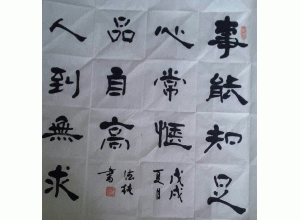 事能知足
心常惬
人到無求
品自高
戊戌
夏月
德桃
書